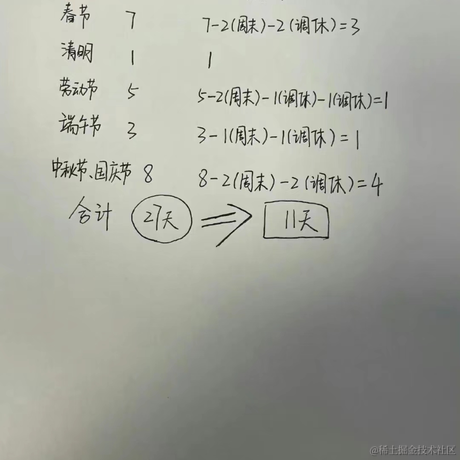 春节 7 7-2(周末)-2(调休)=3
清明 1 1
劳动节 5 5-2(周末)-1(调休)-1(调休)=1
端午节 3 3-1(周末)-1(调休)=1
中秋节、国庆节 8 8-2(周末)-2(调休)=4
合计 27天 ⇒ 11天
@稀土掘金技术社区